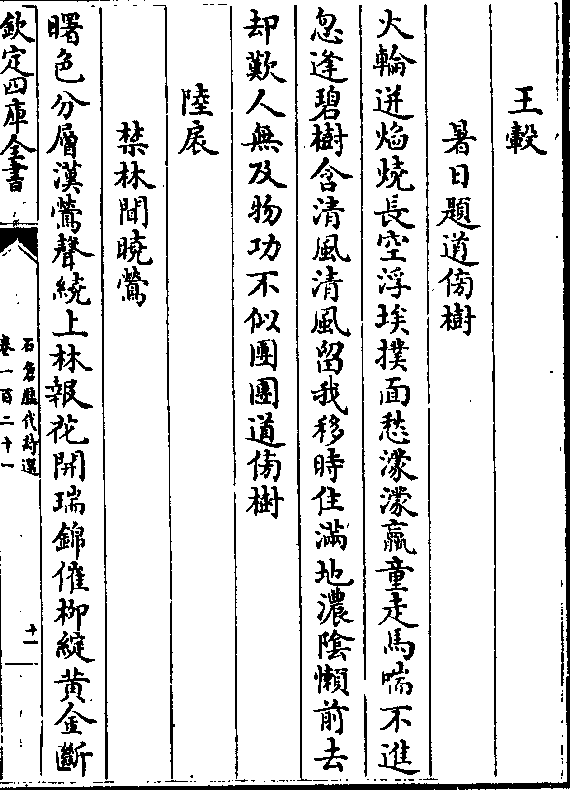 王轂
暑日題道傍樹
火輪迸焰燒長空浮埃撲面愁濛濛羸童走馬喘不進
忽逢碧樹含清風清風留我移時住滿地濃陰懶前去
却歎人無及物功不似團團道傍樹
陸扆
禁林聞曉鶯
曙色分層漢鶯聲繞上林報花開瑞錦催柳綻黄金斷
欽定四庫全書
石倉歷代詩選
卷一百二十一
十一